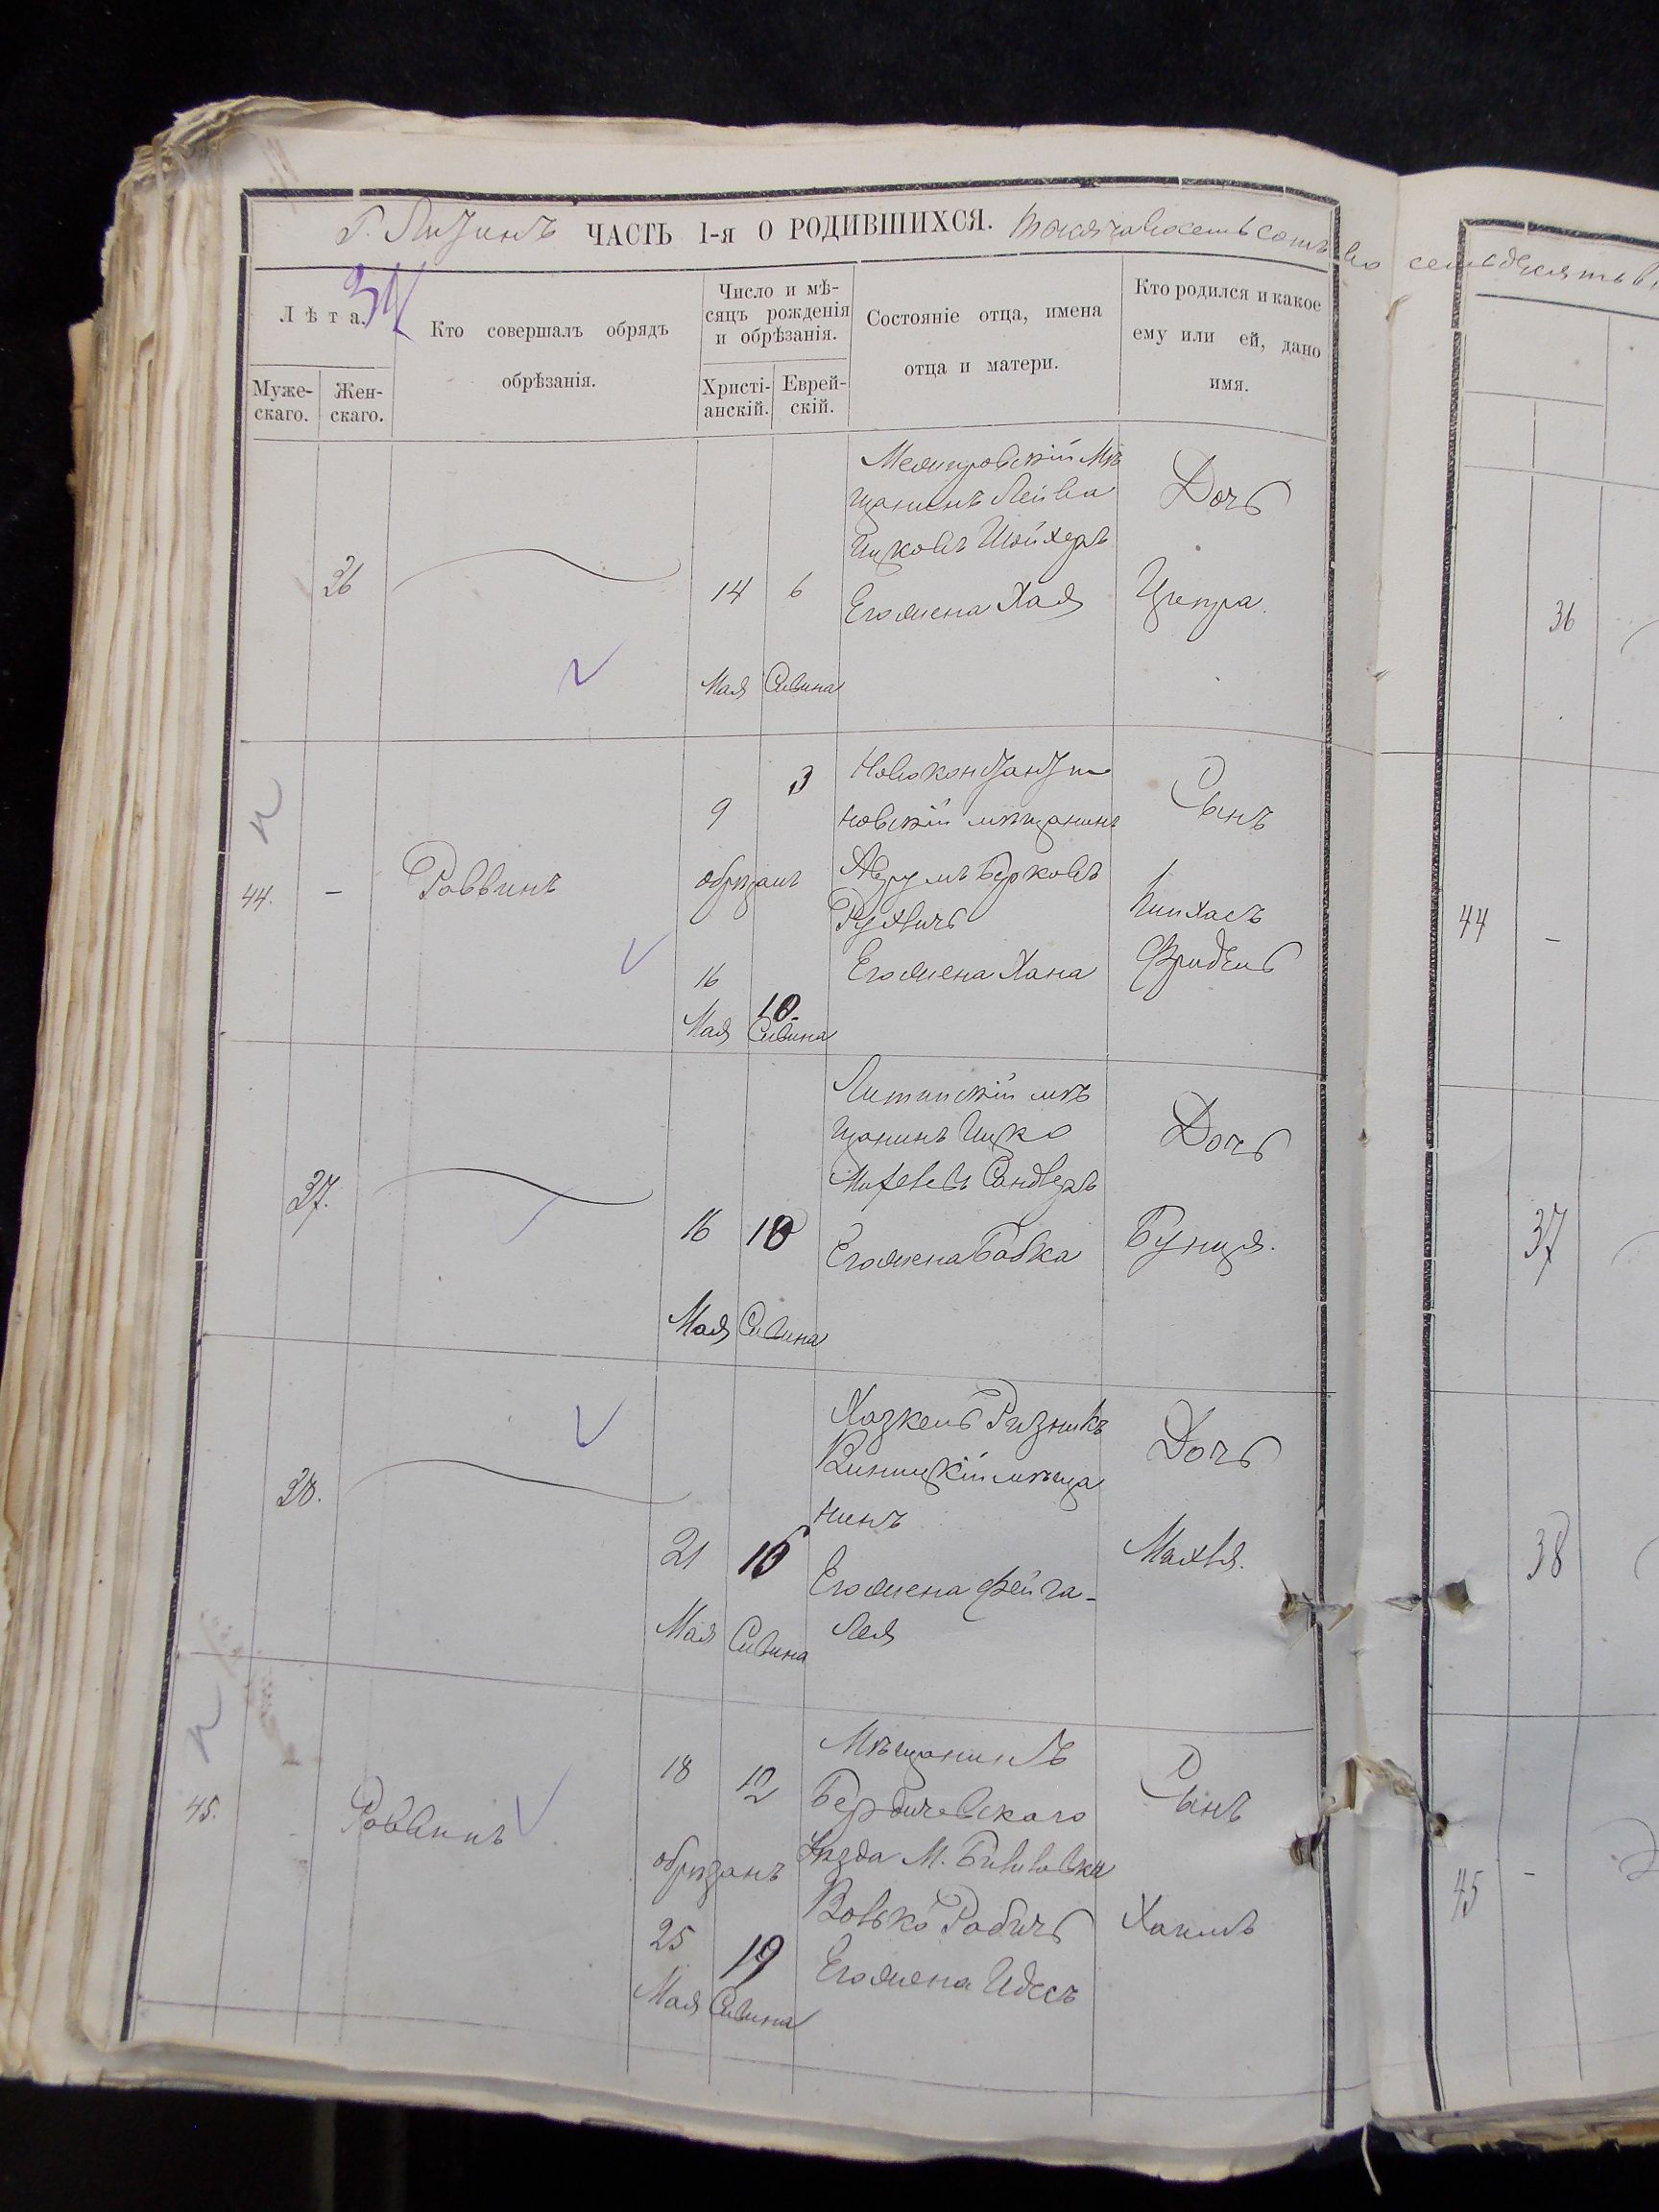 Г. Литинъ ЧАСТЬ I-я О РОДИВШИХСЯ. тысяча восемьсотъ во семьдесятъ
34
Лѣта.
Мужескаго.
Женскаго.
Кто совершалъ обрядъ
обрѣзанія.
Число и мѣ-
сяцъ рожденія
и обрѣзанія.
Христі-
анскій.
Еврей-
скій.
Состояніе отца, имена
отца и матери.
Кто родился и какое
ему или ей, дано
имя.
36
14
6
Мая
Сивина
Межировскій мѣ
щанинъ Лейба
Ицковъ Шойхеръ
Его жена Хая
Дочь
Ципра.
36
44.
-
Раввинъ
9
3
обрѣзанъ
16
10
Мая
Сивина
Новоконстанти
новскій мѣщанинъ
Аврумъ Берковъ
Его жена Хана
Сынъ
Пинхасъ
Фридель
44
-
37.
16
10
Мая
Сивина
Литинскій мѣ
щанинъ Ицко
Сандлеръ
Его жена Бабка
Дочь
Бунця.
37
38.
21
15
Мая
Сивина
Хазкель Ризникъ
Винницкій мѣща
нинъ
Его жена Фейга-
Лея
Дочь
Малья.
38
45.
-
Раввинъ
18
12
обрѣзанъ
25
19
Мая
Сивина
Мѣщанинъ
Бердичевскаго
уѣзда М.
Волько Рабичь
Его жена Идесъ
Сынъ
Хаимъ
45
-